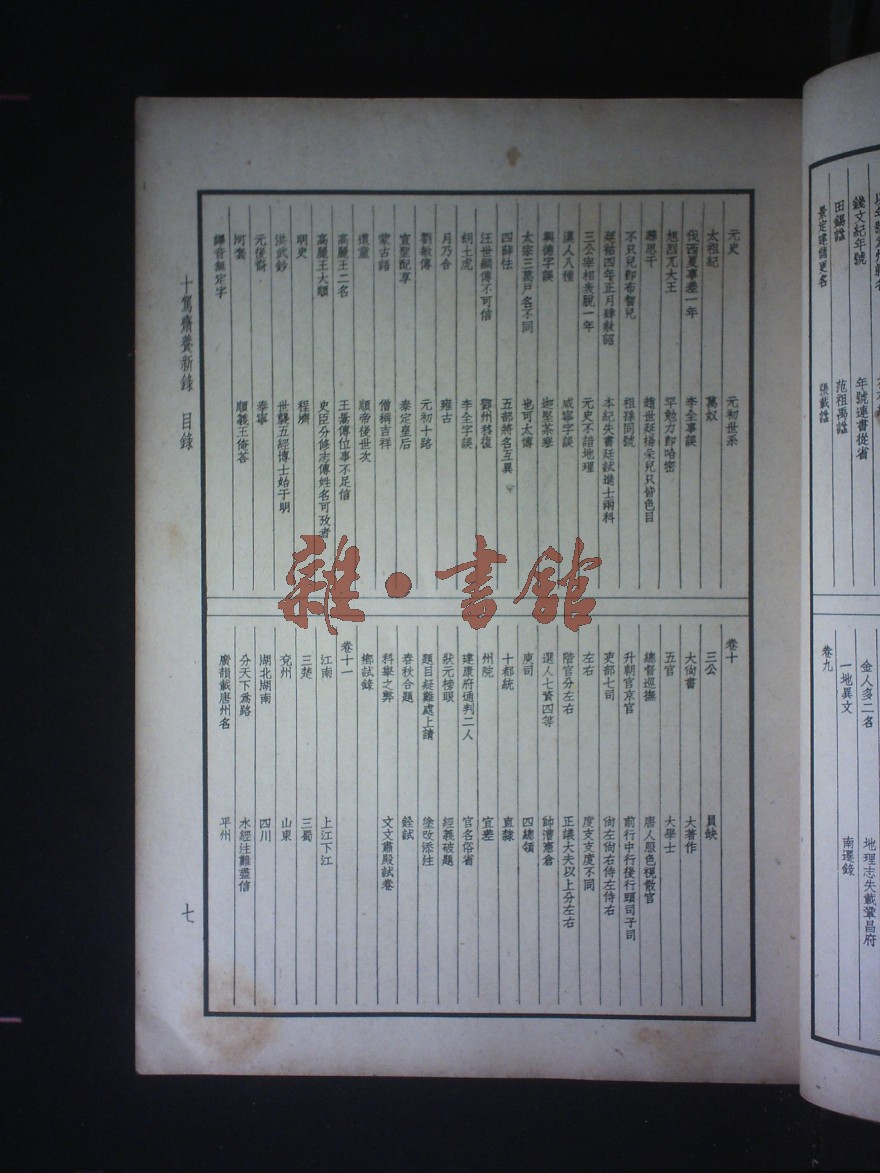 錢文紀年號
年號連書從省
田錫諡
范祖禹諡
景定建儲更名
張載諡
金人多二名
地理志失載鞏昌府
一地異文
南遷錄
卷九
元史
元初世系
太祖紀
萬奴
伐西夏事差一年
李全事誤
旭烈兀大王
罕勉力即哈密
尋思干
趙世延楊朵兒只皆色目
不只兒即布智兒
祖孫同號
延祐四年正月肆赦詔
本紀失書廷試進士兩科
三公宰相表脫一年
元史不諳地理
漢人八種
咸寧字誤
興德字誤
迦堅茶寒
太宗三萬戶名不同
也可太傅
四辥怯
五部將名互異
汪世顯傳不可信
鄧州移復
胡土虎
李全字誤
月乃合
雍古
劉敏傳
元初十路
宣聖配享
泰定皇后
蒙古語
僧稱吉祥
道童
順帝後世次
高麗王二名
王暠傳位事不足信
高麗王大順
史臣分修志傳姓名可攷者
明史
程濟
洪武鈔
世襲五經博士始于明
元後裔
泰寧
河套
順義王俺答
譯音無定字
十駕齋養新錄 目錄
卷十
三公
員缺
大尙書
大著作
五官
大學士
總督巡撫
唐人服色視散官
升朝官京官
前行中行後行頭司子司
吏部七司
尙左尙右侍左侍右
左右
度支支度不同
階官分左右
正議大夫以上分左右
選人七資四等
帥漕憲倉
庾司
四總領
十都統
直隸
州院
宜差
建康府通判二人
官名俗省
狀元榜眼
經義破題
題目疑難處上請
塗改添注
春秋合題
銓試
科舉之弊
文文肅殿試卷
鄉試錄
卷十一
江南
上江下江
三楚
三蜀
兗州
山東
湖北湖南
四川
分天下爲路
水經注難盡信
廣韻載唐州名
平州
七
雜·書館